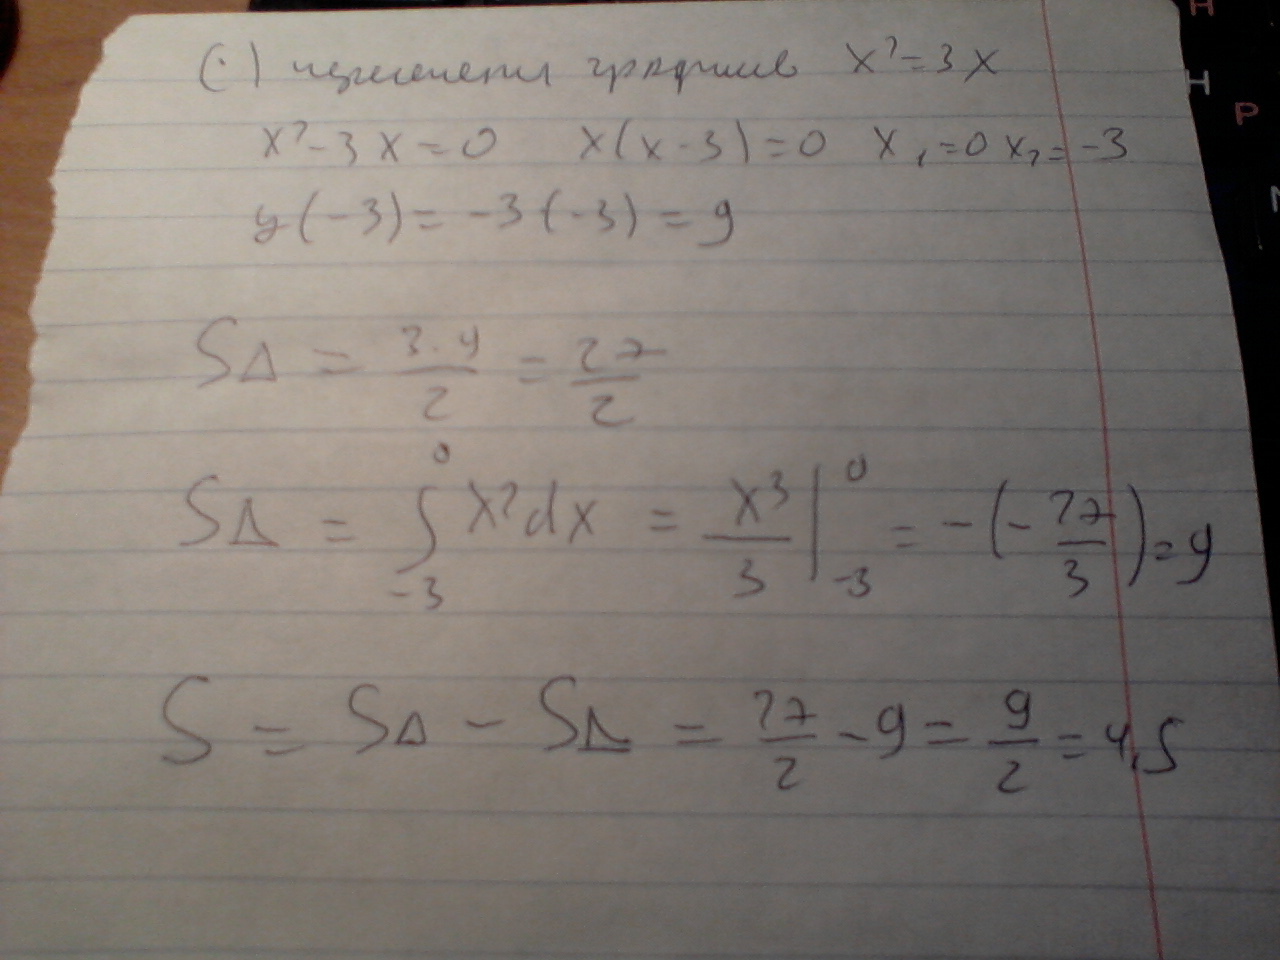 (·) пересечения графиков x² = 3x
x² - 3x = 0 x(x - 3) = 0 x₁ = 0 x₂ = -3
y(-3) = -3(-3) = 9
S△ = 3·9/2 = 27/2
S◺ = ∫₋₃⁰ x²dx = x³/3 |₋₃⁰ = -(-27/3) = 9
S = S△ - S◺ = 27/2 - 9 = 9/2 = 4,5
Н
Н
Р